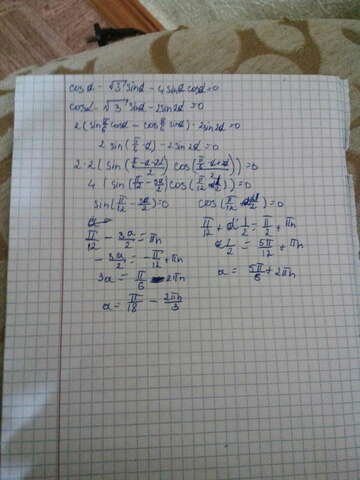 cosα - √3 sinα - 4 sinα cosα = 0
cosα - √3 sinα - 2sin2α = 0
2(sin π/6 cosα - cos π/6 sinα) - 2sin2α = 0
2 sin(π/6 - α) - 2sin2α = 0
2·2(sin((π/6 - α - 2α)/2) cos((π/6 - α + 2α)/2)) = 0
4(sin(π/12 - 3α/2) cos(π/12 + α/2)) = 0
sin(π/12 - 3α/2) = 0 cos(π/12 + α/2) = 0
π/12 - 3α/2 = πn π/12 + α 1/2 = π/2 + πn
- 3α/2 = - π/12 + πn α 1/2 = 5π/12 + πn
3α = π/6 - 2πn α = 5π/6 + 2πn
α = π/18 - 2πn/3